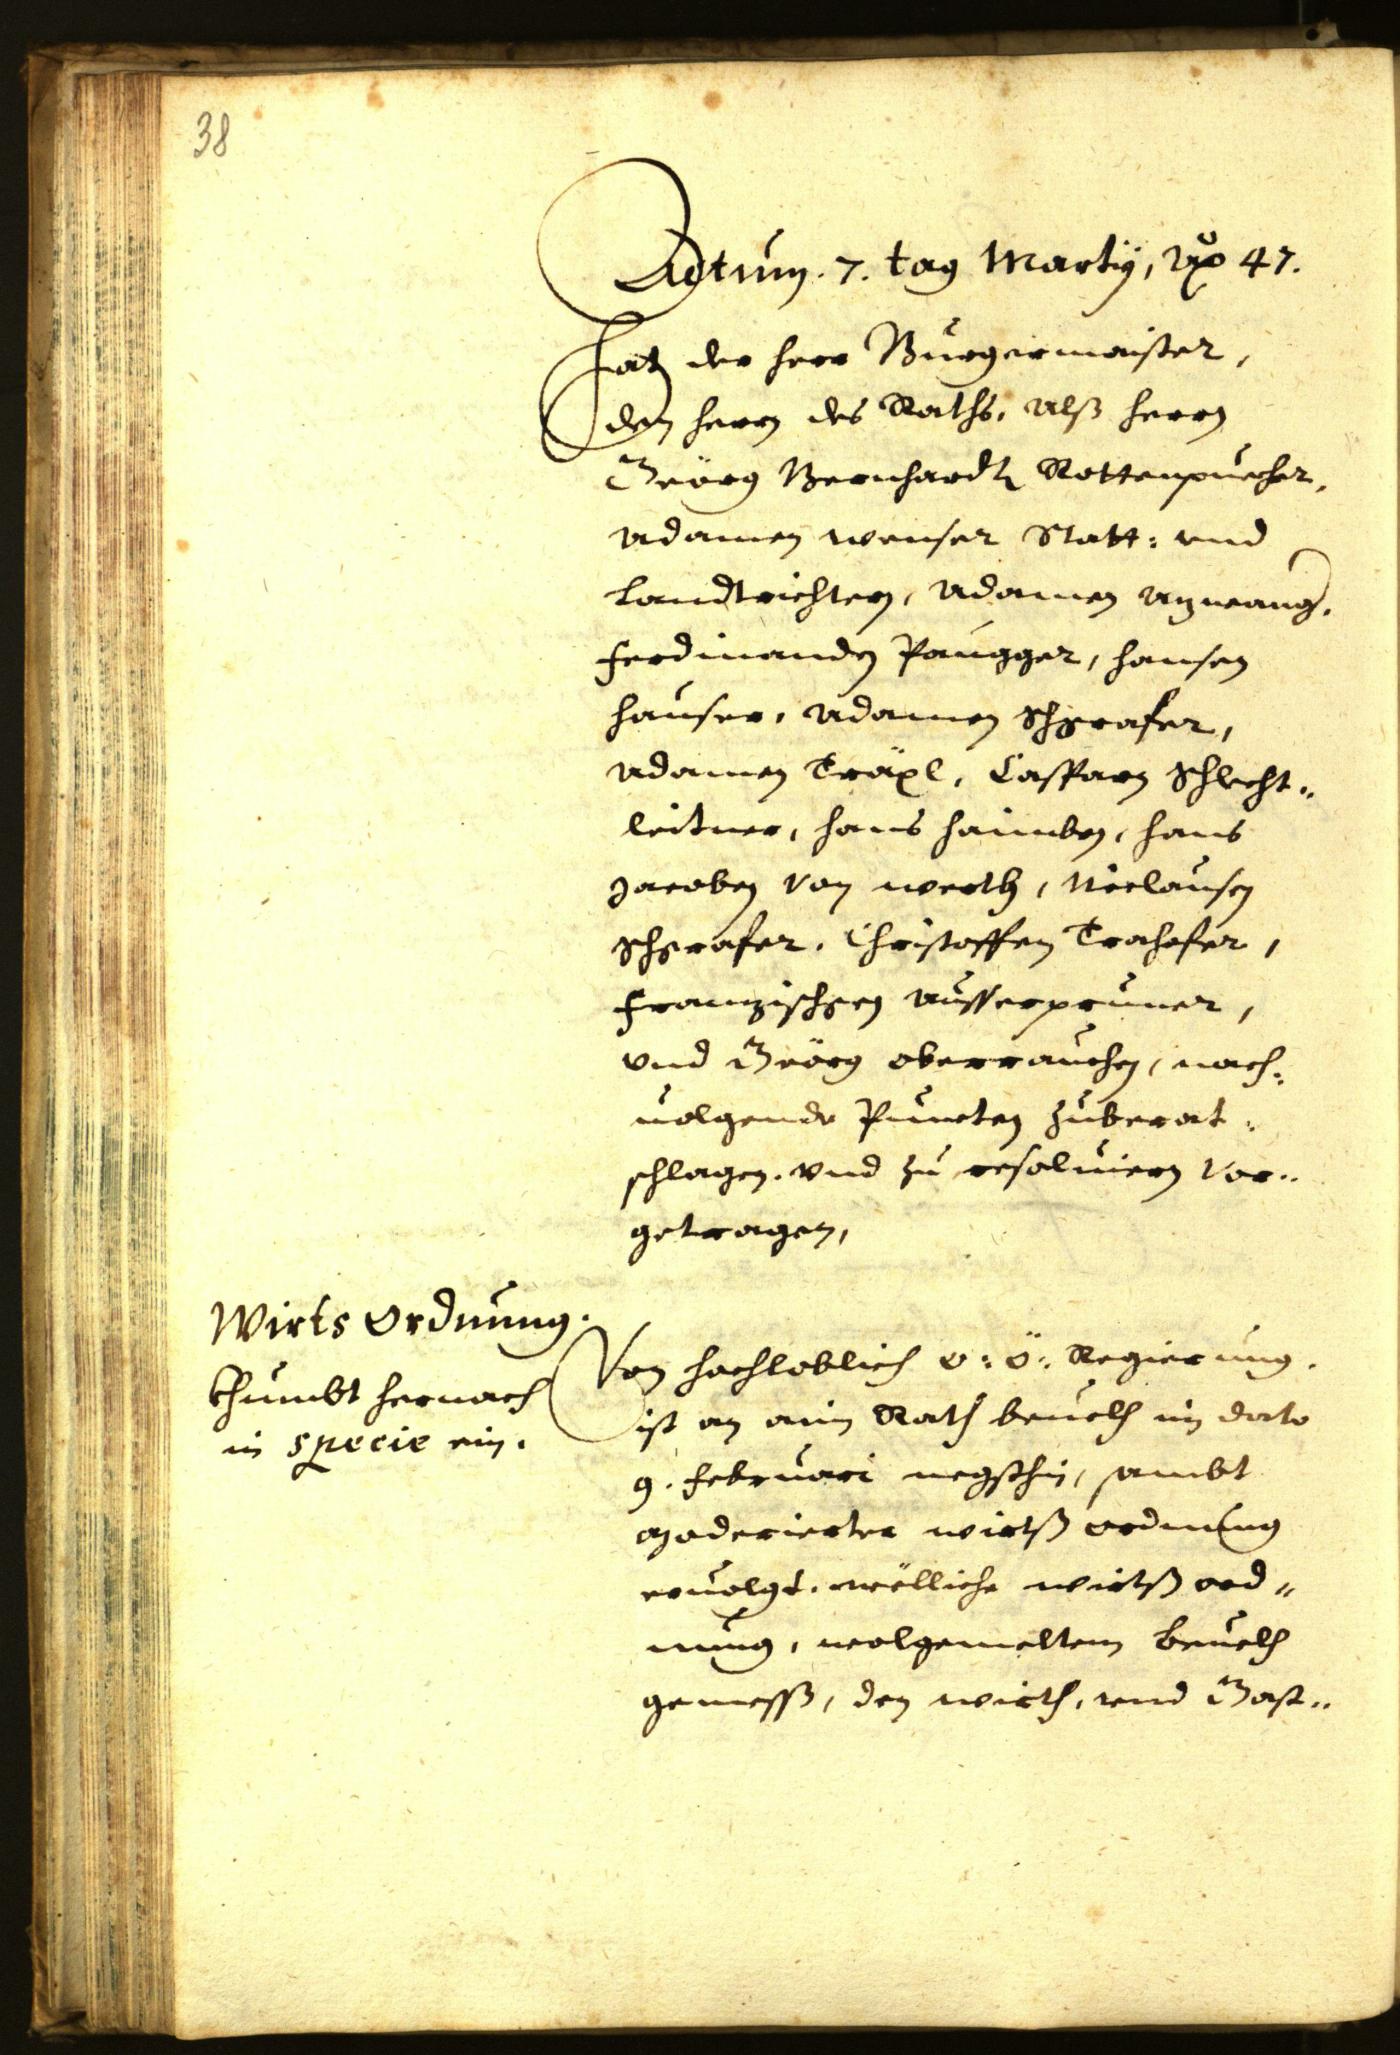 38
Actum. 7. tag Martÿ, Aõ 47.
Hat der herr Burgermaister,
den herrn des Raths, Alß herrn
Geörg Bernhardt Rottenpuecher,
Adamen wenser Statt: und
Landtrichtern, Adamen
Ferdinanden Paugger, Hansen
Hauser, Adamen Schgrafer,
Adamen Träxl, Casparn Schlecht„
leitner, Hans Haimben, Hans
Jacoben von werth, Niclausen
Schgrafer, Christoffen Trahofer,
Franzischgen Ausserpruner,
Und Geörg oberrauchen, nach„
uolgende Puncten zuberat„
schlagen, Und zu resoluiern vor„
getragen,
Wirts Ordnung.
Khumbt hernach
in specie ein.
Von hochloblich o: ö: Regierung,
ist an ain Rath beuelch im dato
9. Februari negsthin, sambt
moderierter wirtß ordnung
eruolgt, wölliche wirtß ord„
nung, wolgemeltem beuelch
gemesß, den wirth, und Gast„